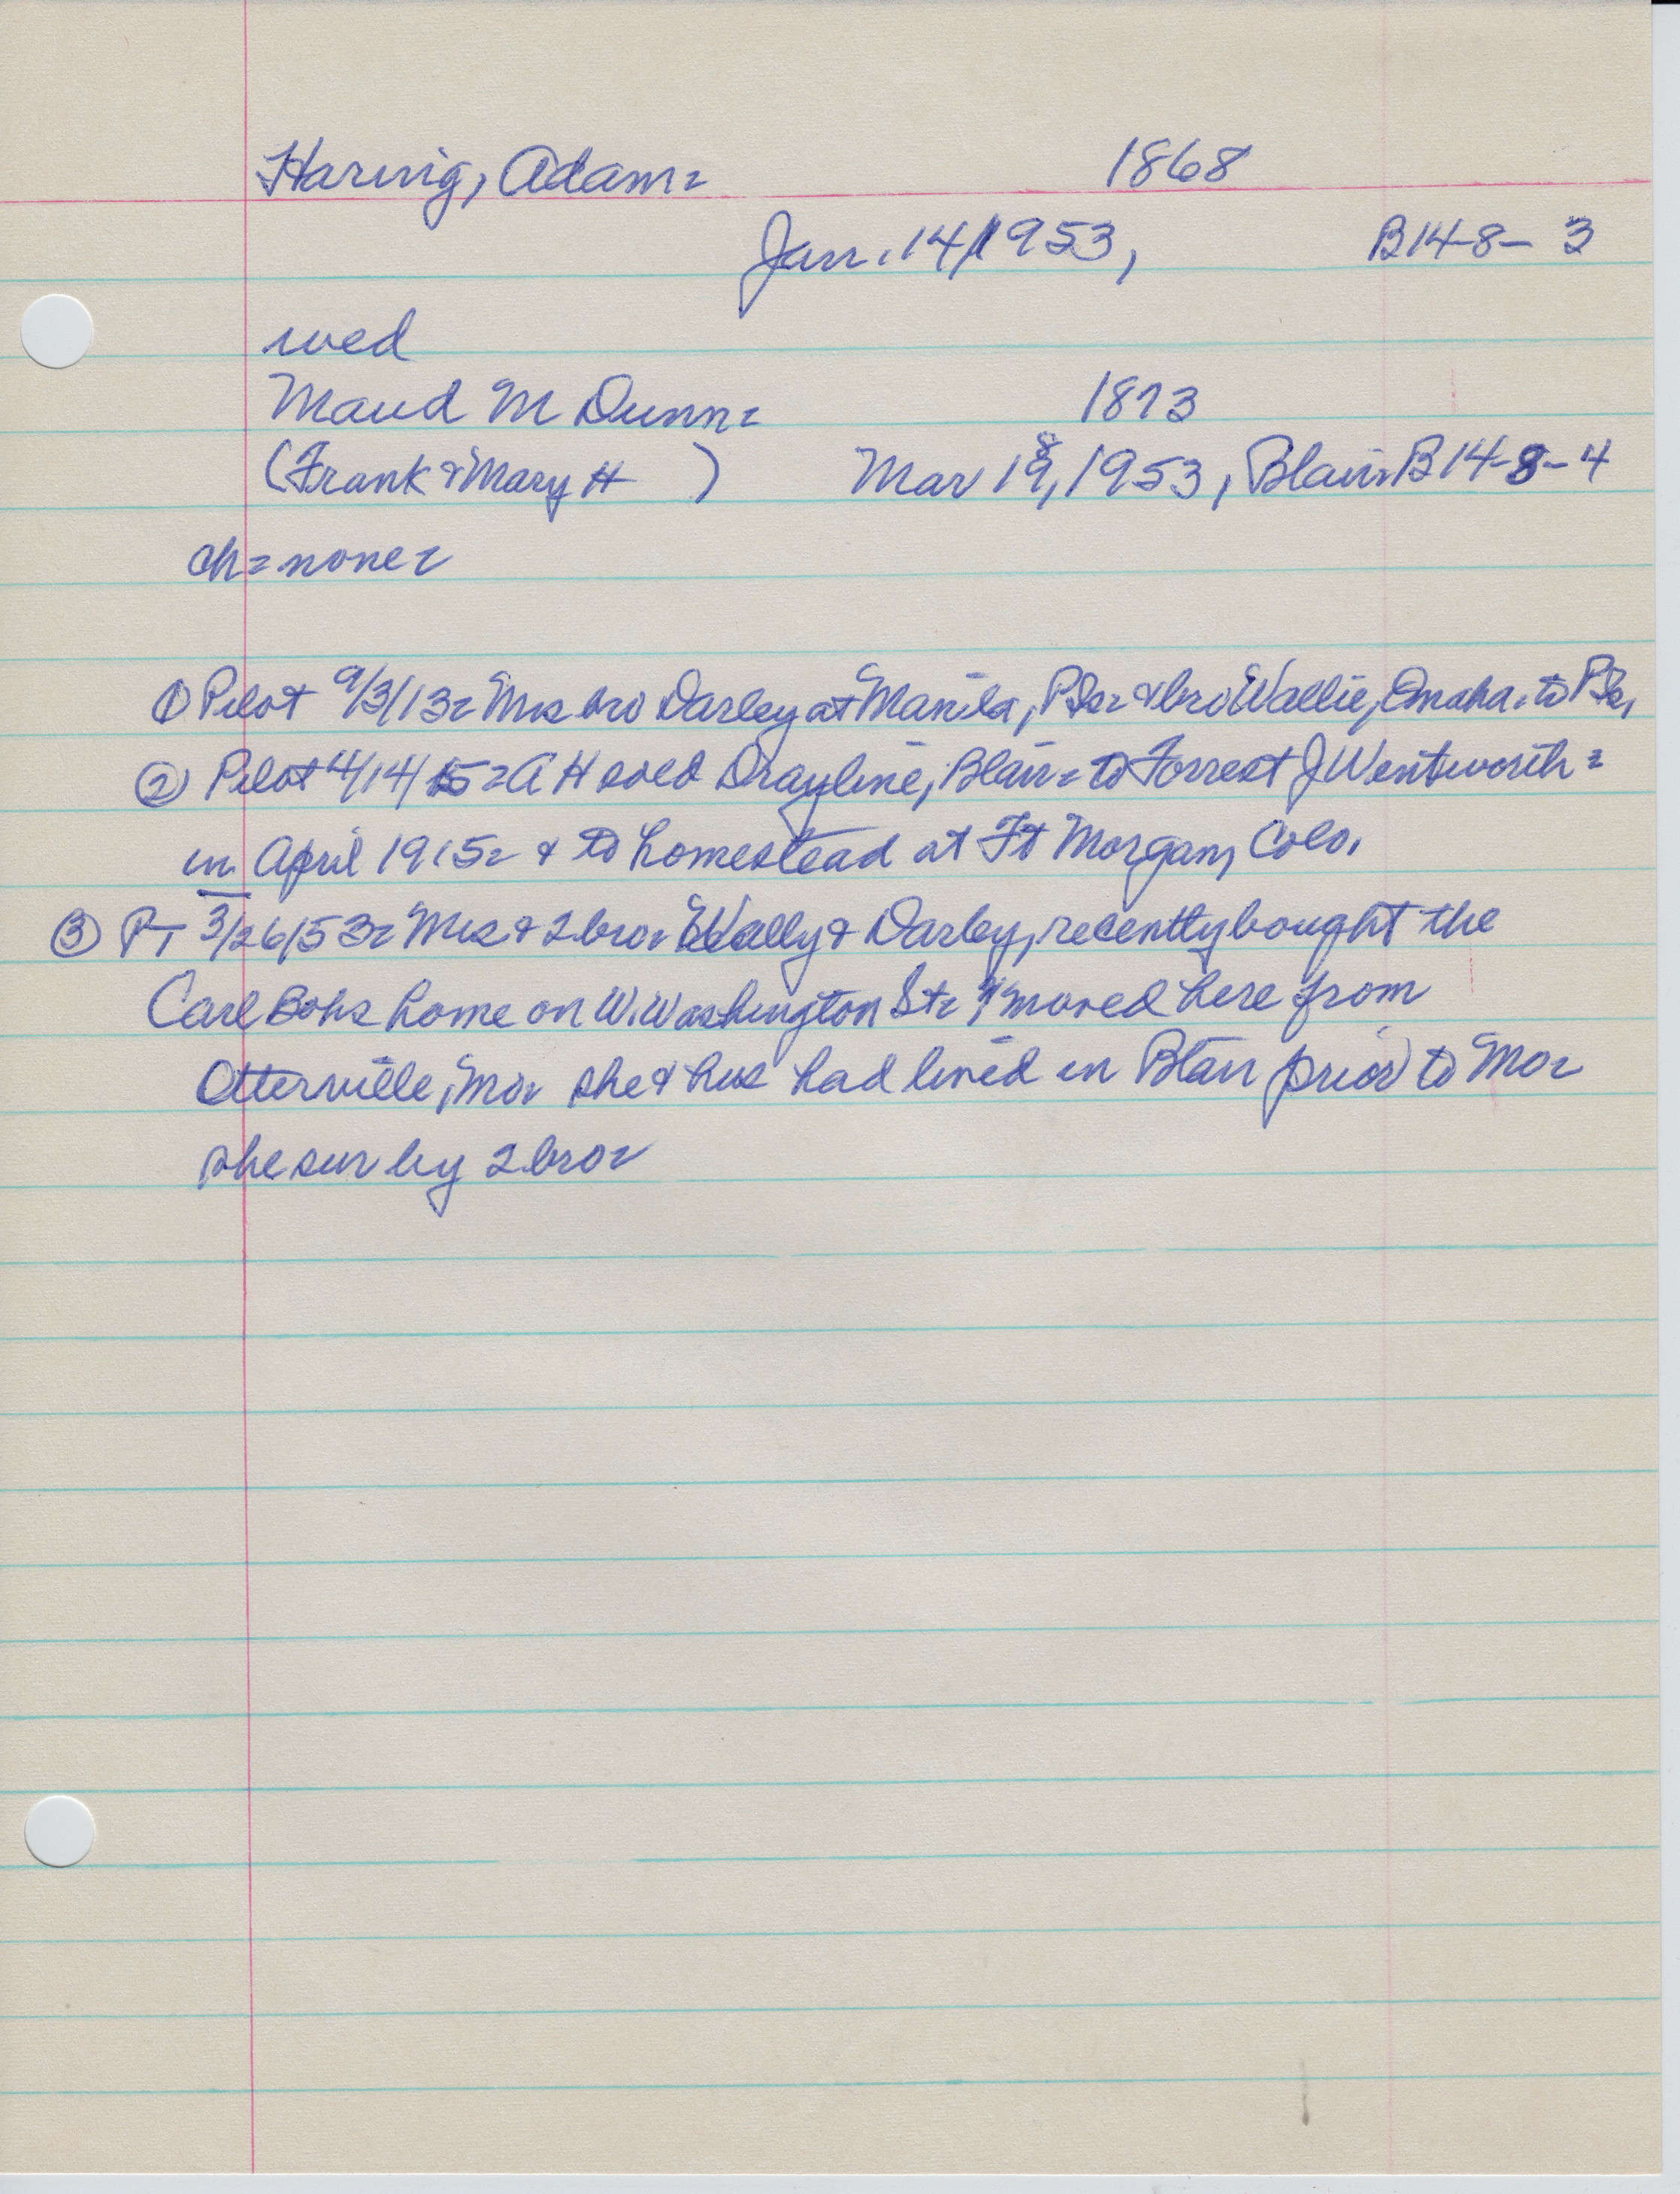 Harwig, Adam= 1868
Jan. 14/1953, B14-8-3
wed
Maud M Dunn= 1873
(Frank & Mary H ) Mar 18, 1953, Blair= B14-8-4
ch= none=
① Pilot 9/3/13= Mrs bro Darley at Manila, & bro Wallie, Omaha. to
② Pilot 4/14/15= A H sold Drayline, Blair= to Forrest J Wentworth=
in April 1915= & to homestead at Ft Morgan, Colo.
③ PT 3/26/53= Mrs & 2 bro= Wally & Darley, recently bought the
Carl Bohs home on W. Washington St= & moved here from
Otterville, Mo= she & hus had lived in Blair prior to Mo=
she sur by 2 bro=